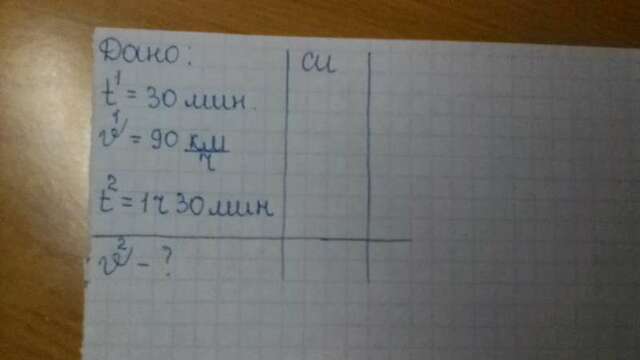 Дано:
СИ
t¹ = 30 мин.
v¹ = 90 км/ч
t² = 1ч 30 мин
v² - ?